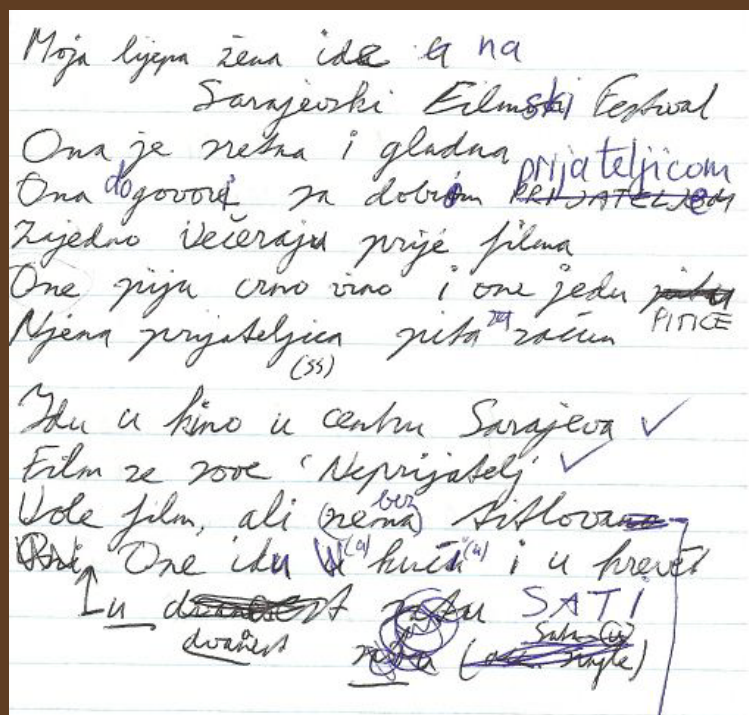 Moja lijepa žena ide u na
Sarajevski Filmski Festival
Ona je sretna i gladna
Ona dogovori sa dobrom PRIJATELJEM prijateljicom
Zajedno večeraju prije filma
One piju crno vino i one jedu PITICE
Njena prijateljica pita za račun
(ss)
Idu u kino u centru Sarajeva ✓
Film se zove 'Neprijatelj' ✓
Vole film, ali (nema) bez titlova
One idu u (a) kuću (u) i u krevet
u SATI
dvanest